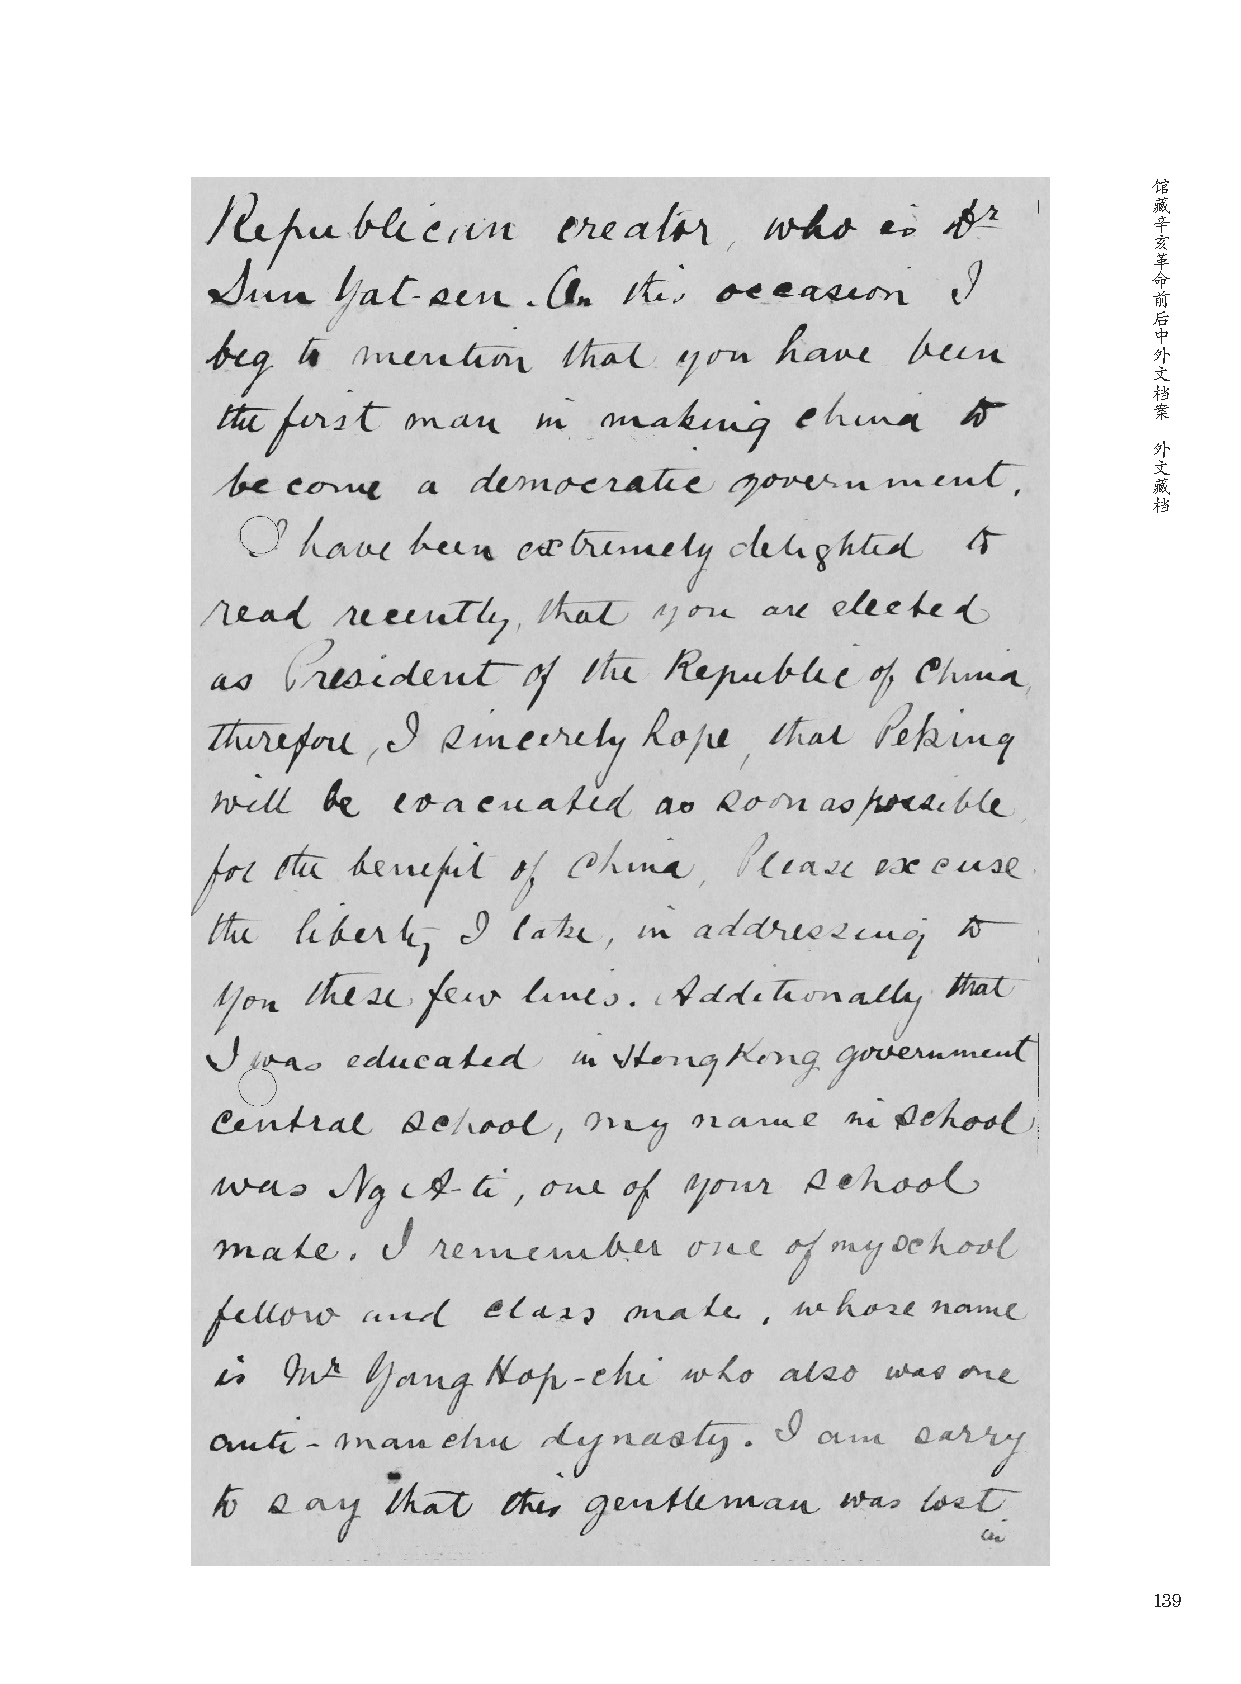 Republican creator, who is Dr
Sun Yat-sen. On this occasion I
beg to mention that you have been
the first man in making china to
become a democratic government.
I have been extremely delighted to
read recently, that you are elected
as President of the Republic of China,
therefore, I sincerely hope, that Peking
will be evacuated as soon as possible,
for the benefit of China, Please excuse
the liberty I take, in addressing to
you these few lines. Additionally that
I was educated in Hong Kong government
central school, my name in school
was Ng A-ti, one of your school
mate. I remember one of my school
fellow and class mate, whose name
is Mr Yang Hop-chi who also was one
anti-manchu dynasty. I am sarry
to say that this gentleman was lost
in
馆藏辛亥革命前后中外文档案 外文藏档
139